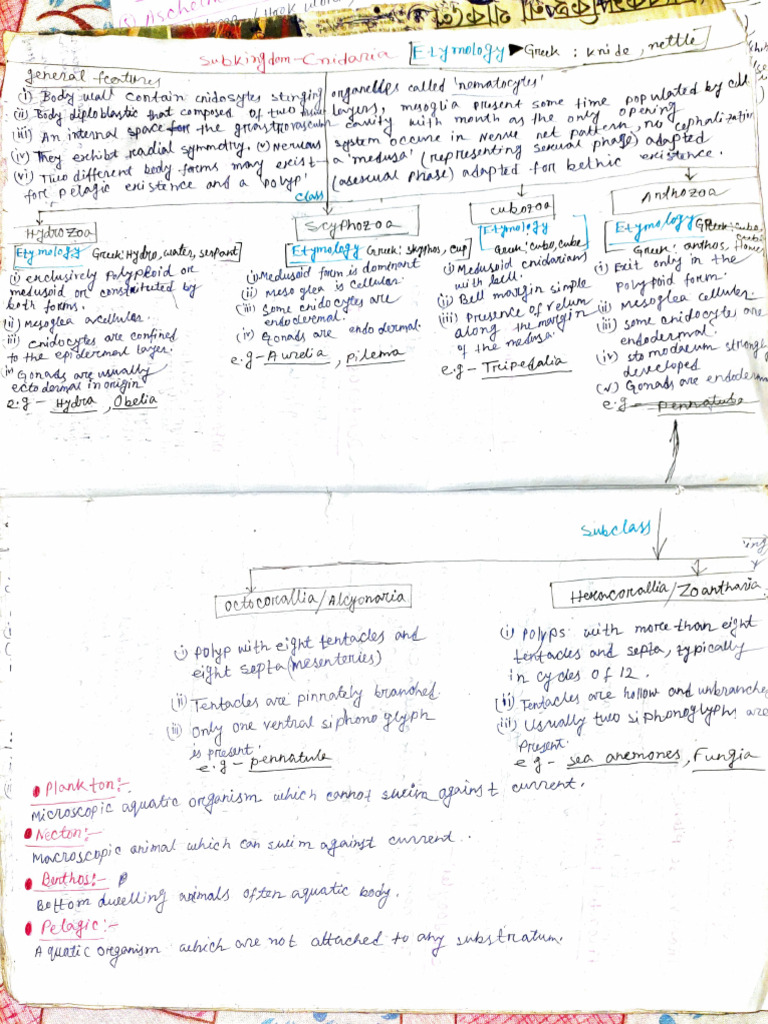 Subkingdom-Cnidaria Etymology Greek: knide, nettle
general features
(i) Body wall contain cnidosytes stinging organelles called 'nematocytes'
(ii) Body diploblastic that composed of two layers, mesoglia present some time populated by cell
(iii) An internal space for the grastrovascular cavity with mouth as the only opening
(iv) They exhibit radial symmdtry. (v) Nervous system occure in Nerve net pattern, no cephalization
(vi) Two different body forms may exist - a 'medusa' (representing sexual phase) adapted
for pelagic existence and a 'polyp' (asexual phase) adapted for bethic existence.
class
Hydrozoa
Etymology Greek: Hydro, water, serpant
(i) exclusively polyploid or
medusoid or constituted by
both forms.
(ii) Mesoglea acellular.
(iii) cnidocytes are confined
to the epidermal layer.
(iv) Gonads are usually
ectodermal in origin
e.g - Hydra, Obelia
Scyphozoa
Etymology Greek: skyphos, cup
(i) Medusoid form is dominant
(ii) Mesoglea is cellular.
(iii) some cnidocytes are
endodermal.
(iv) Gonads are endodermal.
e.g - Aurelia, pilema
cubozoa
Etymology
Greek: cubo, cube
(i) Medusoid cnidarians
with bell.
(ii) Bell margin simple
(iii) Presence of velum
along the margin
of the medusa.
e.g - Tripedalia
Anthozoa
Etymology
Greek: anthos, flower
(i) Exit only in the
polypoid form.
(ii) mesoglea cellular.
(iii) some cnidocyte are
endodermal.
(iv) stomodaeum strongly
developed
(v) Gonads are
e.g - Pennatula
subclass
Octocorallia/Alcyonaria
(i) polyp with eight tentacles and
eight septa (mesenteries)
(ii) Tentacles are pinnately branched.
(iii) Only one ventral siphonoglyph
is present.
e.g - pennatula
Hexacorallia/Zoantharia
(i) polyps with more than eight
tentacles and septa, typically
in cycles of 12.
(ii) Tentacles are hollow and unbranched
(iii) Usually two siphonoglyphs are
present.
e.g - sea anemones, Fungia
Plankton:-
Microscopic aquatic organism which cannot swim against current.
Necton:-
Macroscopic animal which can swim against current.
Benthos:-
Bottom dwelling animals often aquatic body.
Pelagic:-
Aquatic organism which are not attached to any substratum.